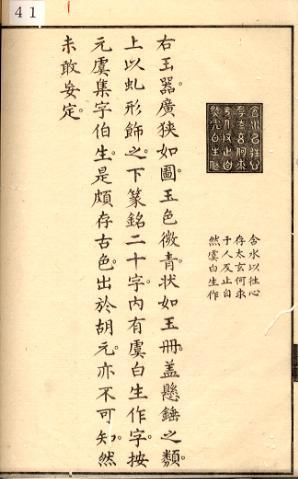 41
含水以性心
存太玄何求
于人反止自
然虞白生作
右玉器廣狹如圖。玉色微青。狀如玉冊。蓋懸錘之類。
上以虬形飾之。下篆銘二十字。內有虞白生作字。按
元虞集字伯生。是頗存古色。出於胡元。亦不可知。然
未敢妄定。